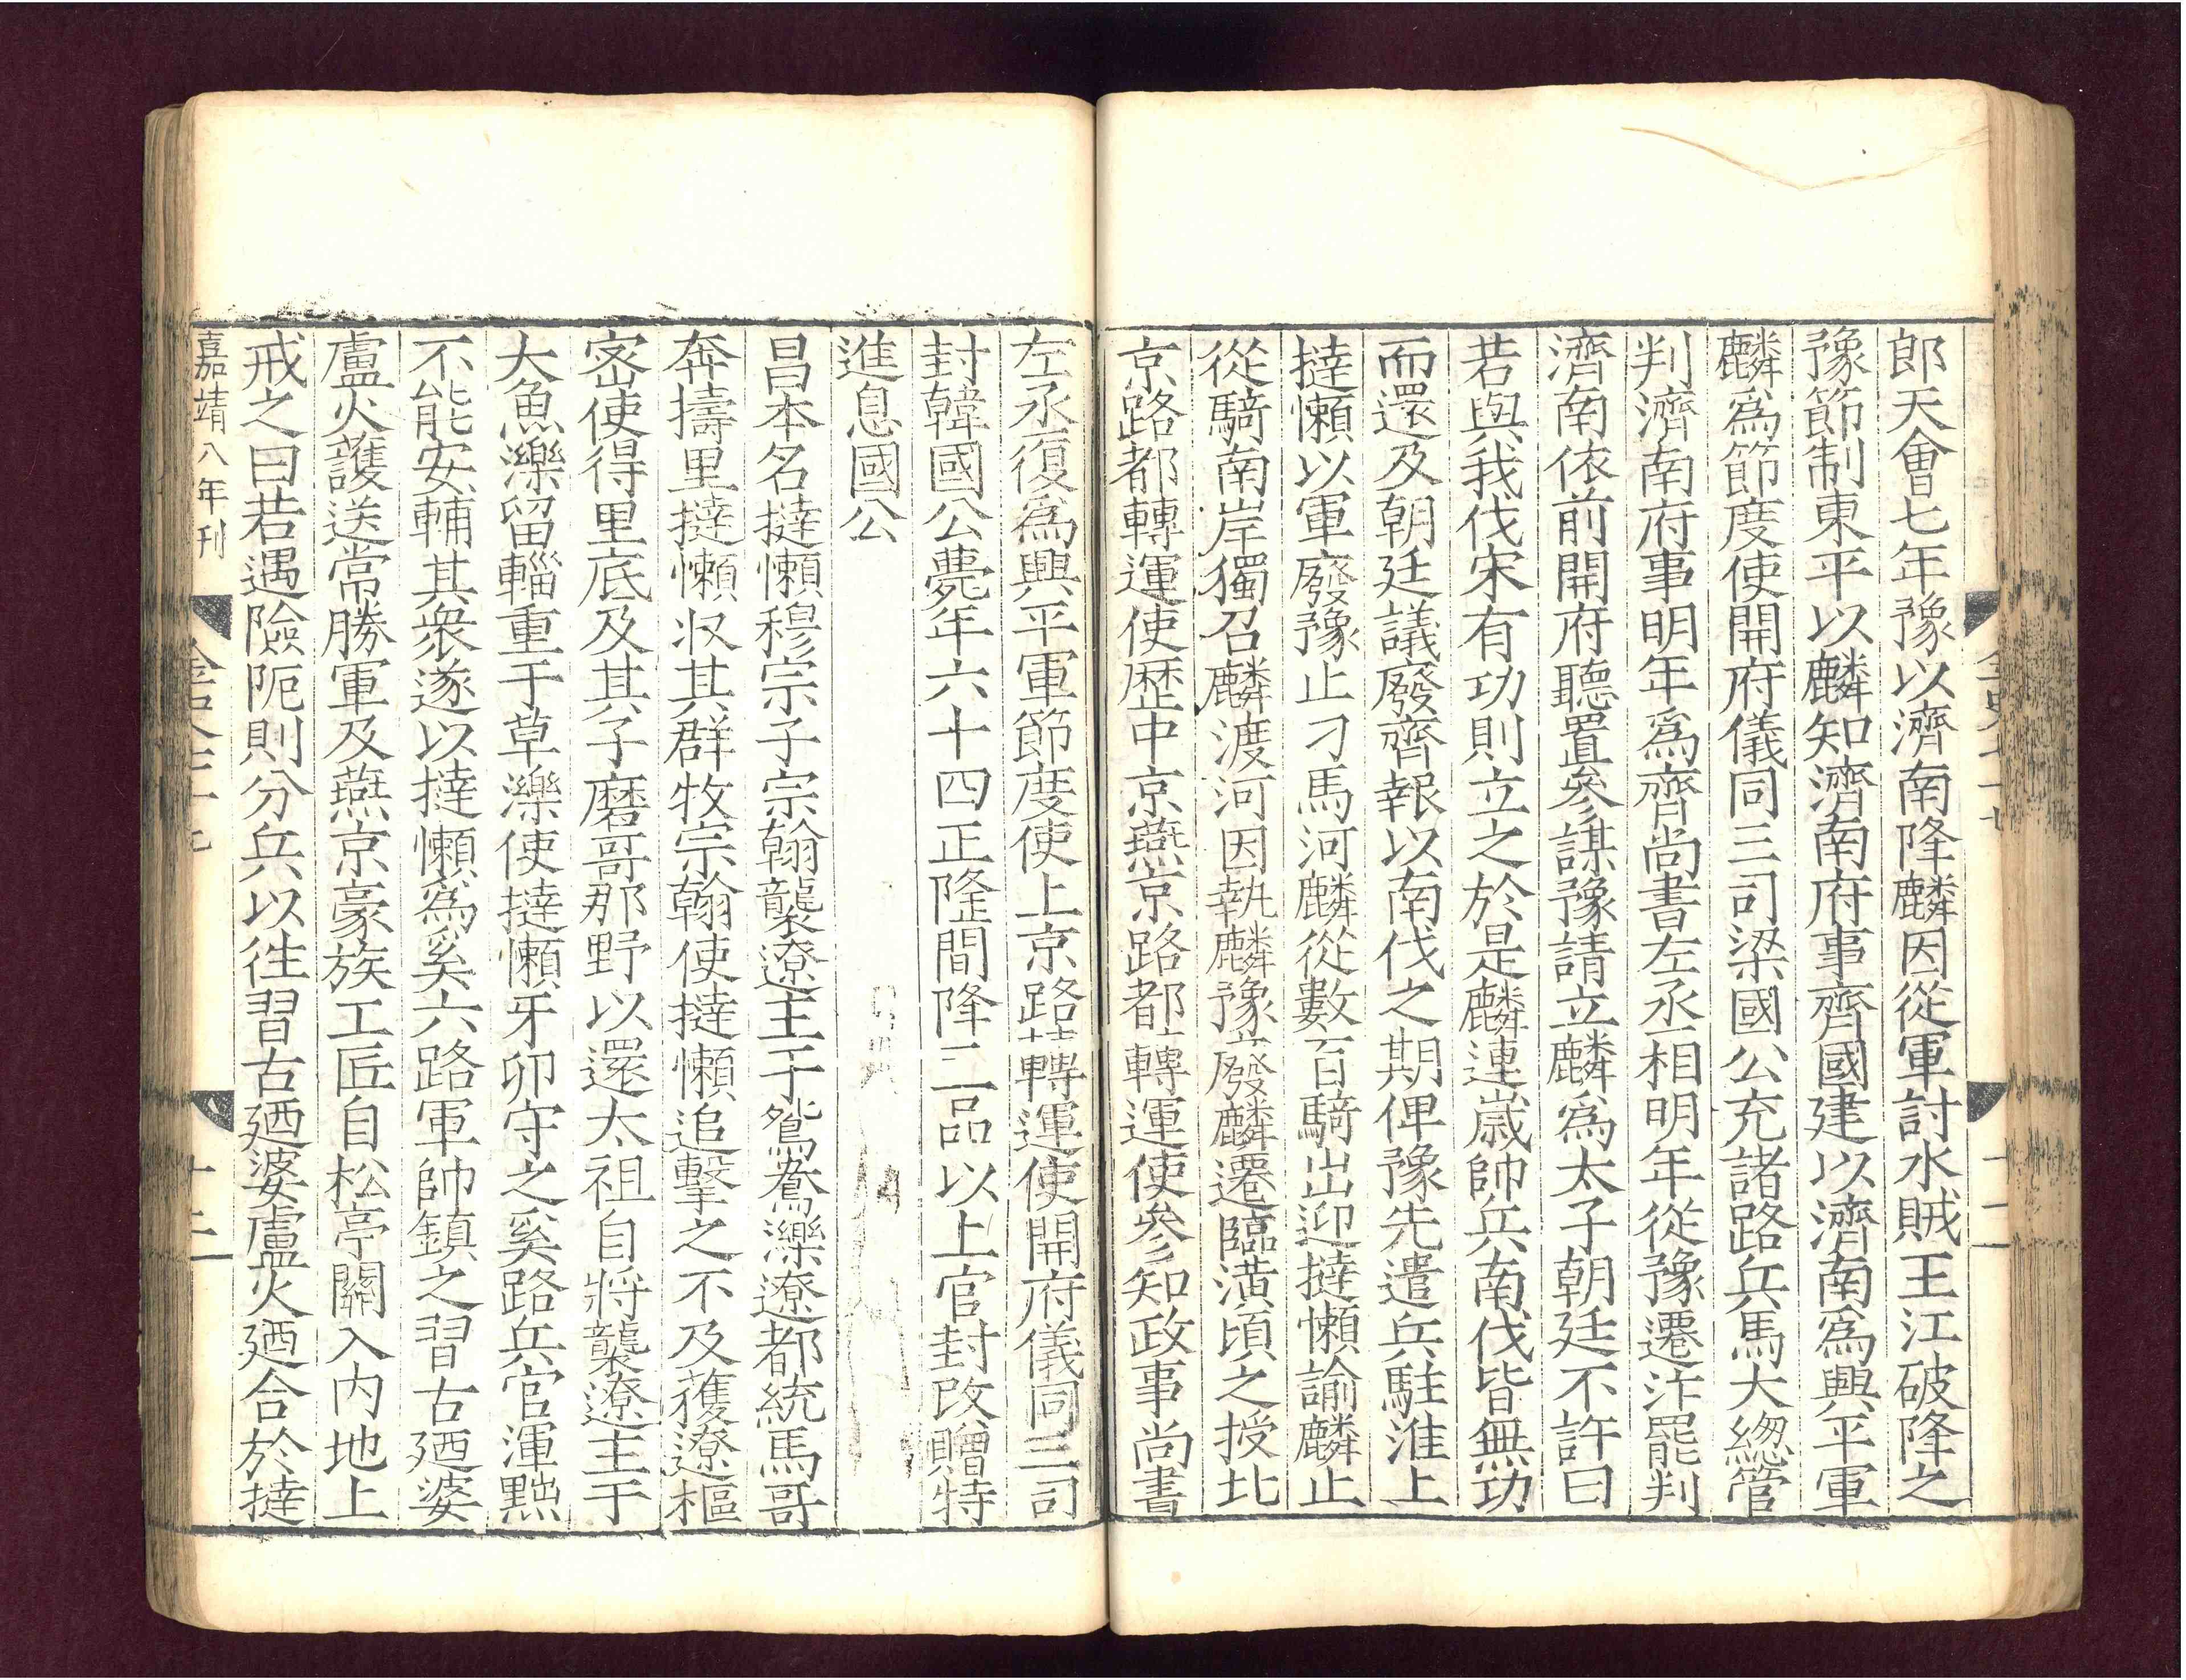 郎天會七年豫以濟南降麟因從軍討水賊王江破降之
豫節制東平以麟知濟南府事齊國建以濟南爲興平軍
麟爲節度使開府儀同三司梁國公充諸路兵馬大緫管
判濟南府事明年爲齊尚書左丞相明年從豫遷汴罷判
濟南依前開府聽置參謀豫請立麟爲太子朝廷不許曰
若與我伐宋有功則立之於是麟連歲帥兵南伐皆無功
而還及朝廷議廢齊報以南伐之期俾豫先遣兵駐淮上
撻懶以軍廢豫止刁馬河麟從數百騎出迎撻懶諭麟止
從騎南岸獨召麟渡河因執麟豫廢麟遷臨潢頃之授北
京路都轉運使歷中京燕京路都轉運使參知政事尚書
左丞復爲興平軍節度使上京路轉運使開府儀同三司
封韓國公薨年六十四正隆間降二品以上官封改贈特
進息國公
昌本名撻懶穆宗子宗翰襲遼主于鴛鴦濼遼都統馬哥
奔擣里撻懶収其群牧宗翰使撻懶追擊之不及獲遼樞
宻使得里底及其子磨哥那野以還太祖自將襲遼主于
大魚濼留輜重于草濼使撻懶牙卯守之奚路兵官渾黜
不能安輔其衆遂以撻懶爲奚六路軍帥鎮之習古廼婆
盧火護送常勝軍及燕京豪族工匠自松亭關入内地上
戒之曰若遇險阨則分兵以徃習古廼婆盧火廼合於撻
嘉靖八年刊
十三